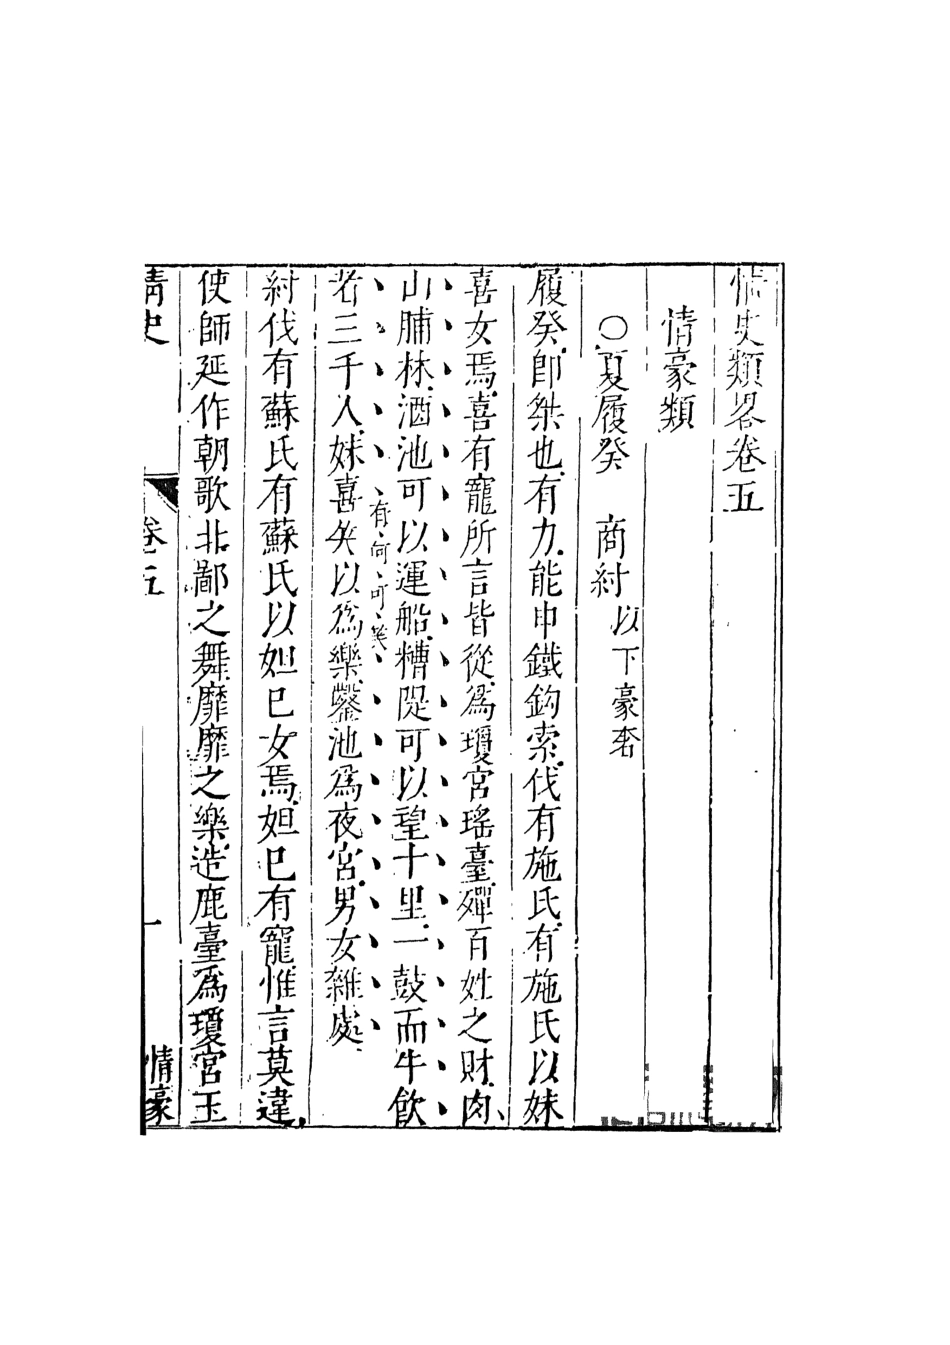 情史類畧卷五
情豪類
○夏履癸　商紂以下豪奢
履癸卽桀也有力能申鐵鈎索伐有施氏有施氏以妹
喜女焉喜有寵所言皆從爲瓊宮瑤臺殫百姓之財肉
山脯林酒池可以運船糟隄可以望十里一鼓而牛飲
者三千人妹喜笑以爲樂鑿池爲夜宮男女雜處
有何可笑
紂伐有蘇氏有蘇氏以妲巳女焉妲巳有寵惟言莫違
使師延作朝歌北鄙之舞靡靡之樂造鹿臺爲瓊宮玉
情史　卷五　一　情豪